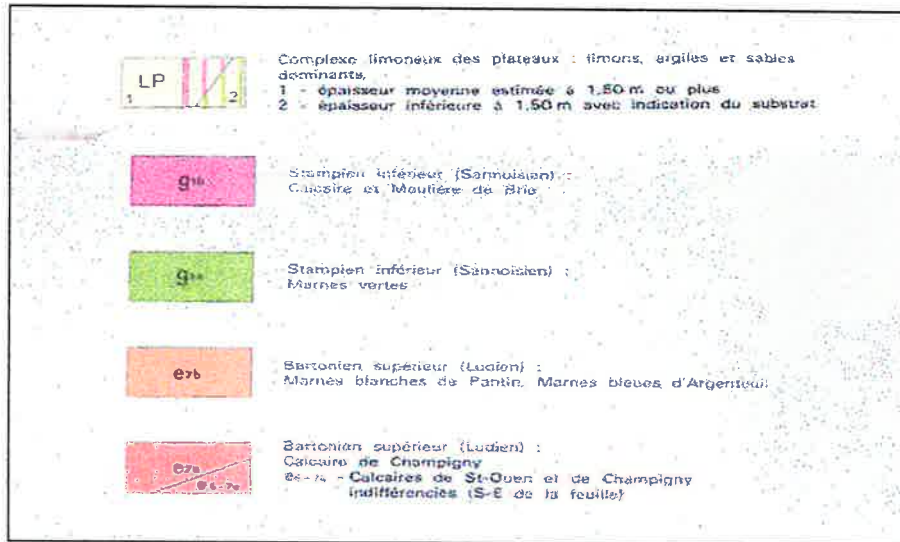 LP
1
2
Complexe limoneux des plateaux : limons, argiles et sables
dominants,
1 - épaisseur moyenne estimée à 1,50 m ou plus
2 - épaisseur inférieure à 1,50 m avec indication du substrat
g1b
Stampien inférieur (Sannoisien) :
Calcaire et Moulière de Brie
g1a
Stampien inférieur (Sannoisien) :
Marnes vertes
e7b
Bartonien supérieur (Ludien) :
Marnes blanches de Pantin, Marnes bleues d'Argenteuil
e7a
e6-7a
Bartonien supérieur (Ludien) :
Calcaire de Champigny
e6-7a - Calcaires de St-Ouen et de Champigny
indifférenciés (S-E de la feuille)